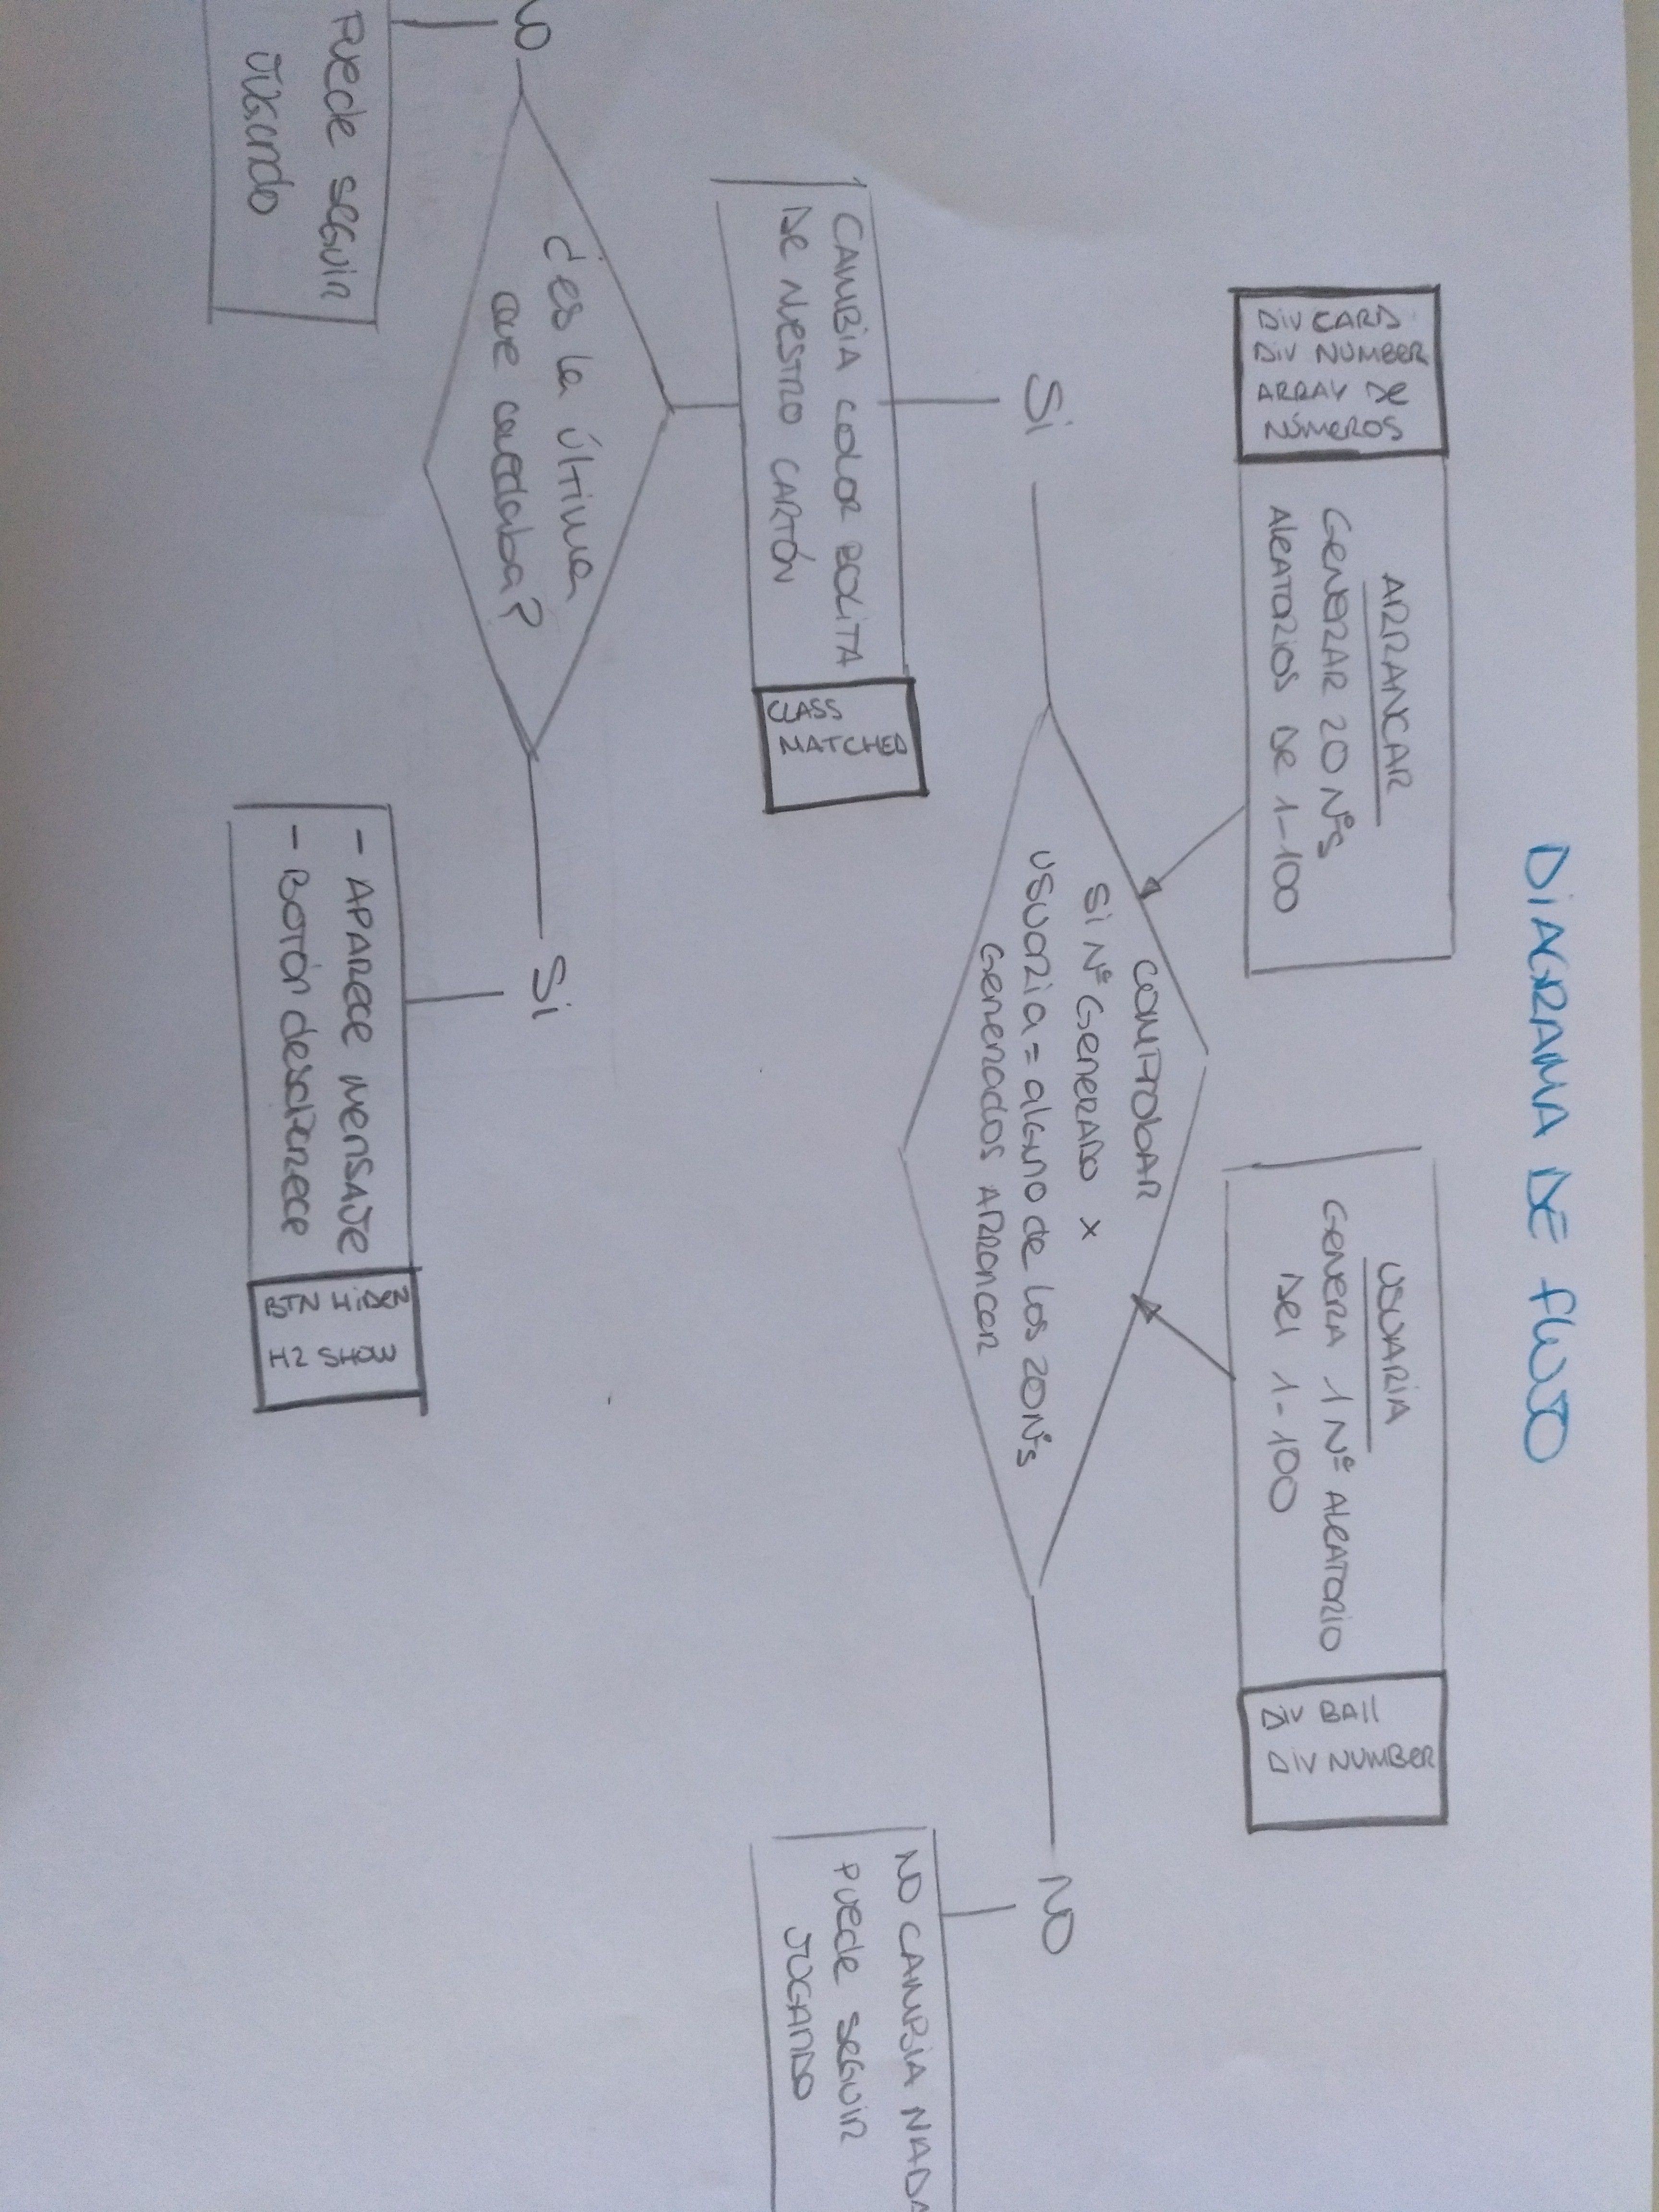 DIAGRAMA DE FLUJO
DIV CARD
DIV NUMBER
ARRAY DE
NÚMEROS
ARRANCAR
GENERAR 20 NºS
ALEATORIOS DE 1-100
USUARIA
GENERA 1 Nº ALEATORIO
DEL 1-100
DIV BALL
DIV NUMBER
COMPROBAR
SI Nº GENERADO X
USUARIA = ALGUNO DE LOS 20 NºS
GENERADOS ARRANCAR
SI
NO
CAMBIA COLOR BOLITA
DE NUESTRO CARTÓN
CLASS
MATCHED
NO CAMBIA NADA
PUEDE SEGUIR
JUGANDO
¿es la última
que quedaba?
NO
SI
PUEDE SEGUIR
JUGANDO
- APARECE MENSAJE
- BOTÓN desaparece
BTN HIDEN
H2 SHOW